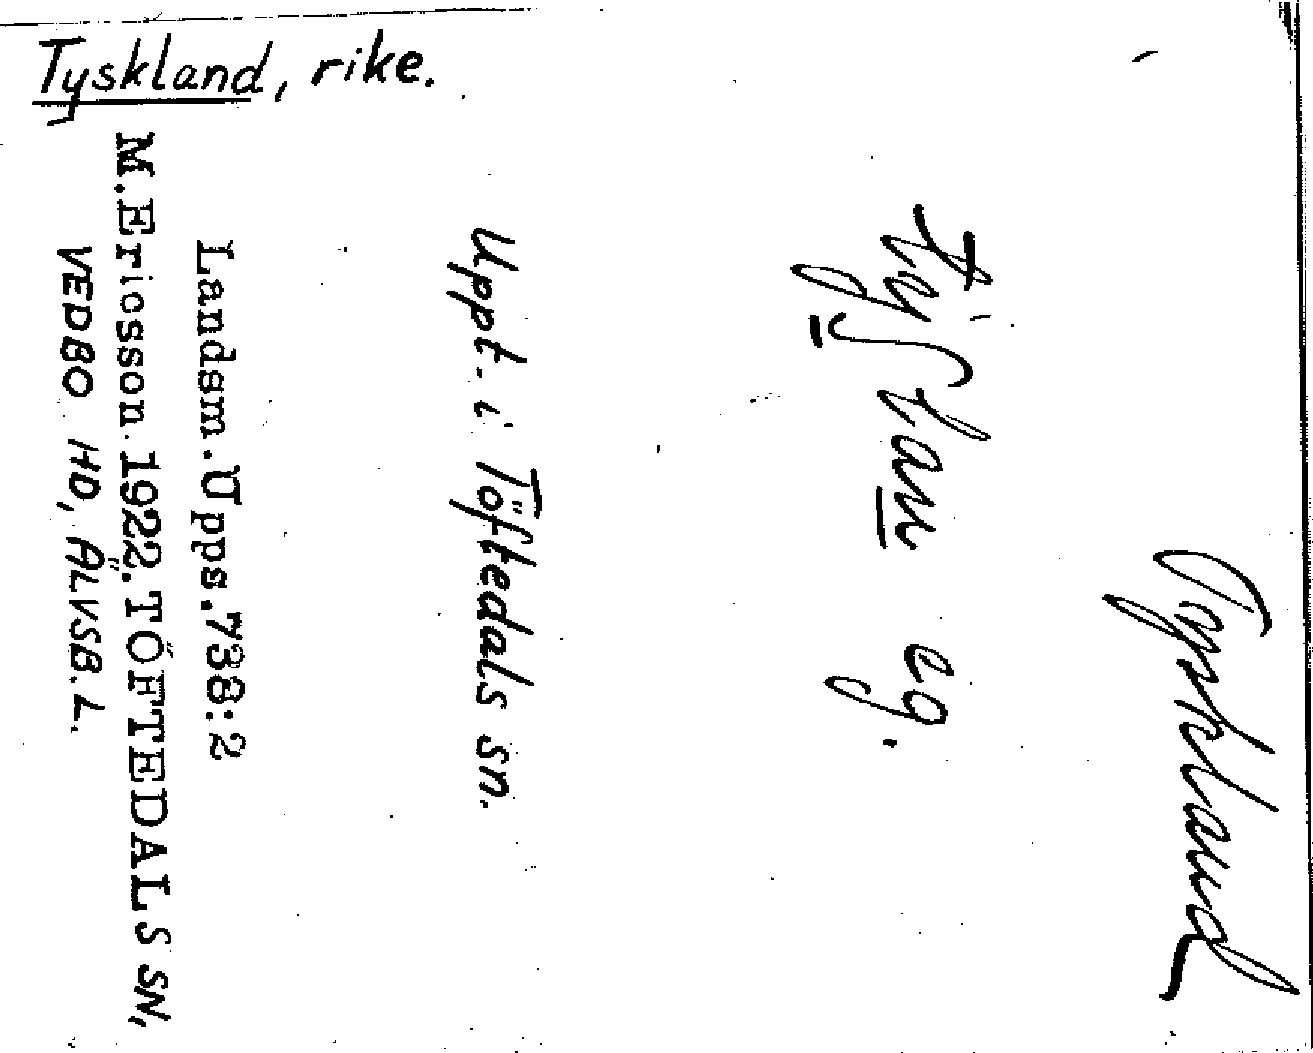 Tyskland, rike.
Tyskland
eg.
Uppt. i Töftedals sn.
Landsm. Upps. 738:2
M. Ericsson. 1922. TÖFTEDALS SN,
VEDBO HD, ÄLVSB. L.